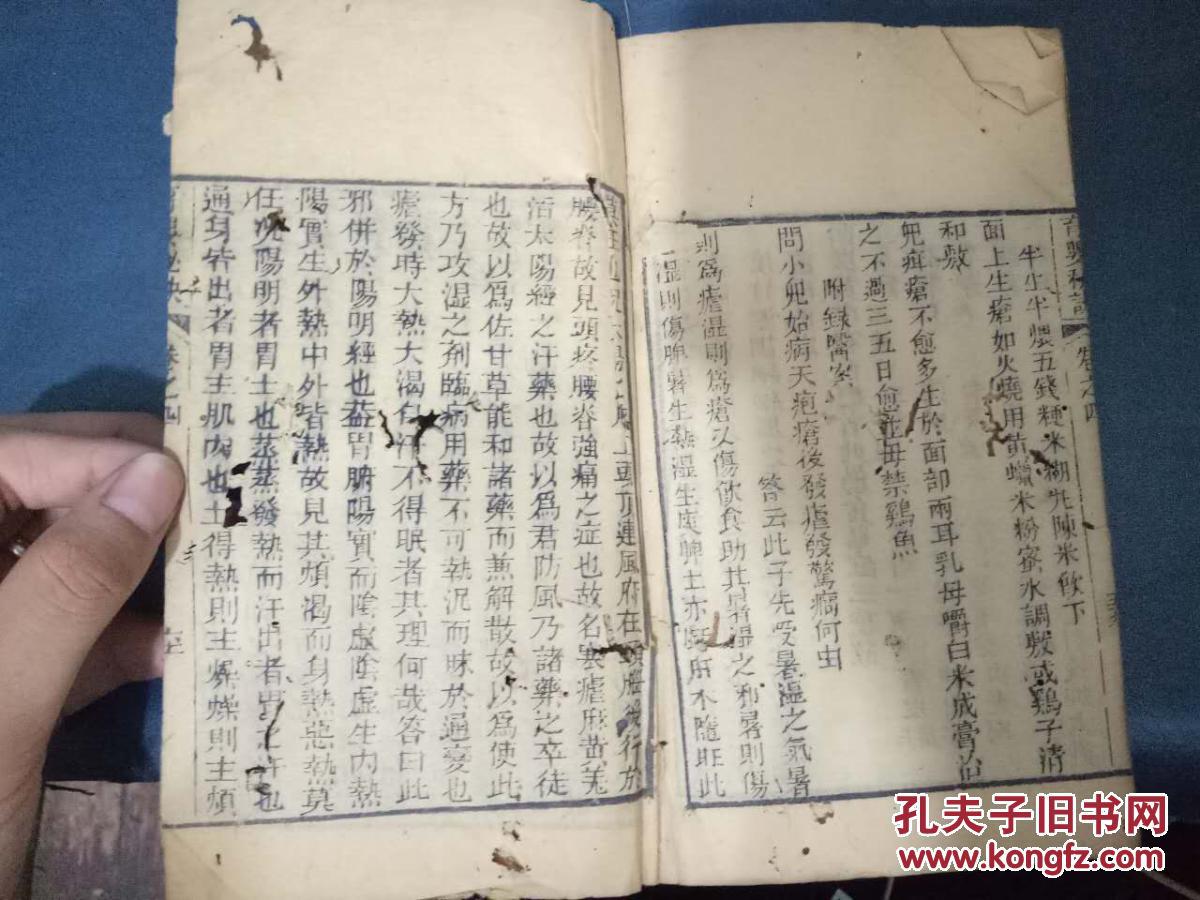 育嬰秘訣
卷之四
半生半煨五錢粳米糊丸陳米飲下
面上生瘡如火燒用黃蠟米粉蜜水調敷或鷄子清
和敷
兒疳瘡不愈多生於面部兩耳乳母嚼白米成膏治
之不過三五日愈並毋禁鷄魚
附錄醫案
問小兒始病天疱瘡後發瘧發驚癎何由
答云此子先受暑溫之氣暑
則爲瘧濕則爲瘡又傷飲食助其暑溫之邪暑則傷
濕則傷脾暑生熱濕生痰脾土亦肝木隨旺此
頭頂連風府在頭後行於
腰脊故見頭疼腰脊強痛之症也故名寒瘧麻黃羌
活太陽經之汗藥也故以爲君防風乃諸藥之卒徒
也故以爲佐甘草能和諸藥而兼解散故以爲使此
方乃攻濕之剤臨病用藥不可執泥而昧於通變也
瘧發時大熱大渴自汗不得眠者其理何哉答曰此
邪併於陽明經也蓋胃腑陽實而陰虛陰虛生內熱
陽實生外熱中外皆熱故見其煩渴而身熱惡熱莫
任況陽明者胃土也蒸蒸發熱而汗出者胃之汗也
通身皆出者胃主肌肉也土得熱則主燥燥則主煩
卷之四
孔夫子旧书网
www.kongfz.com